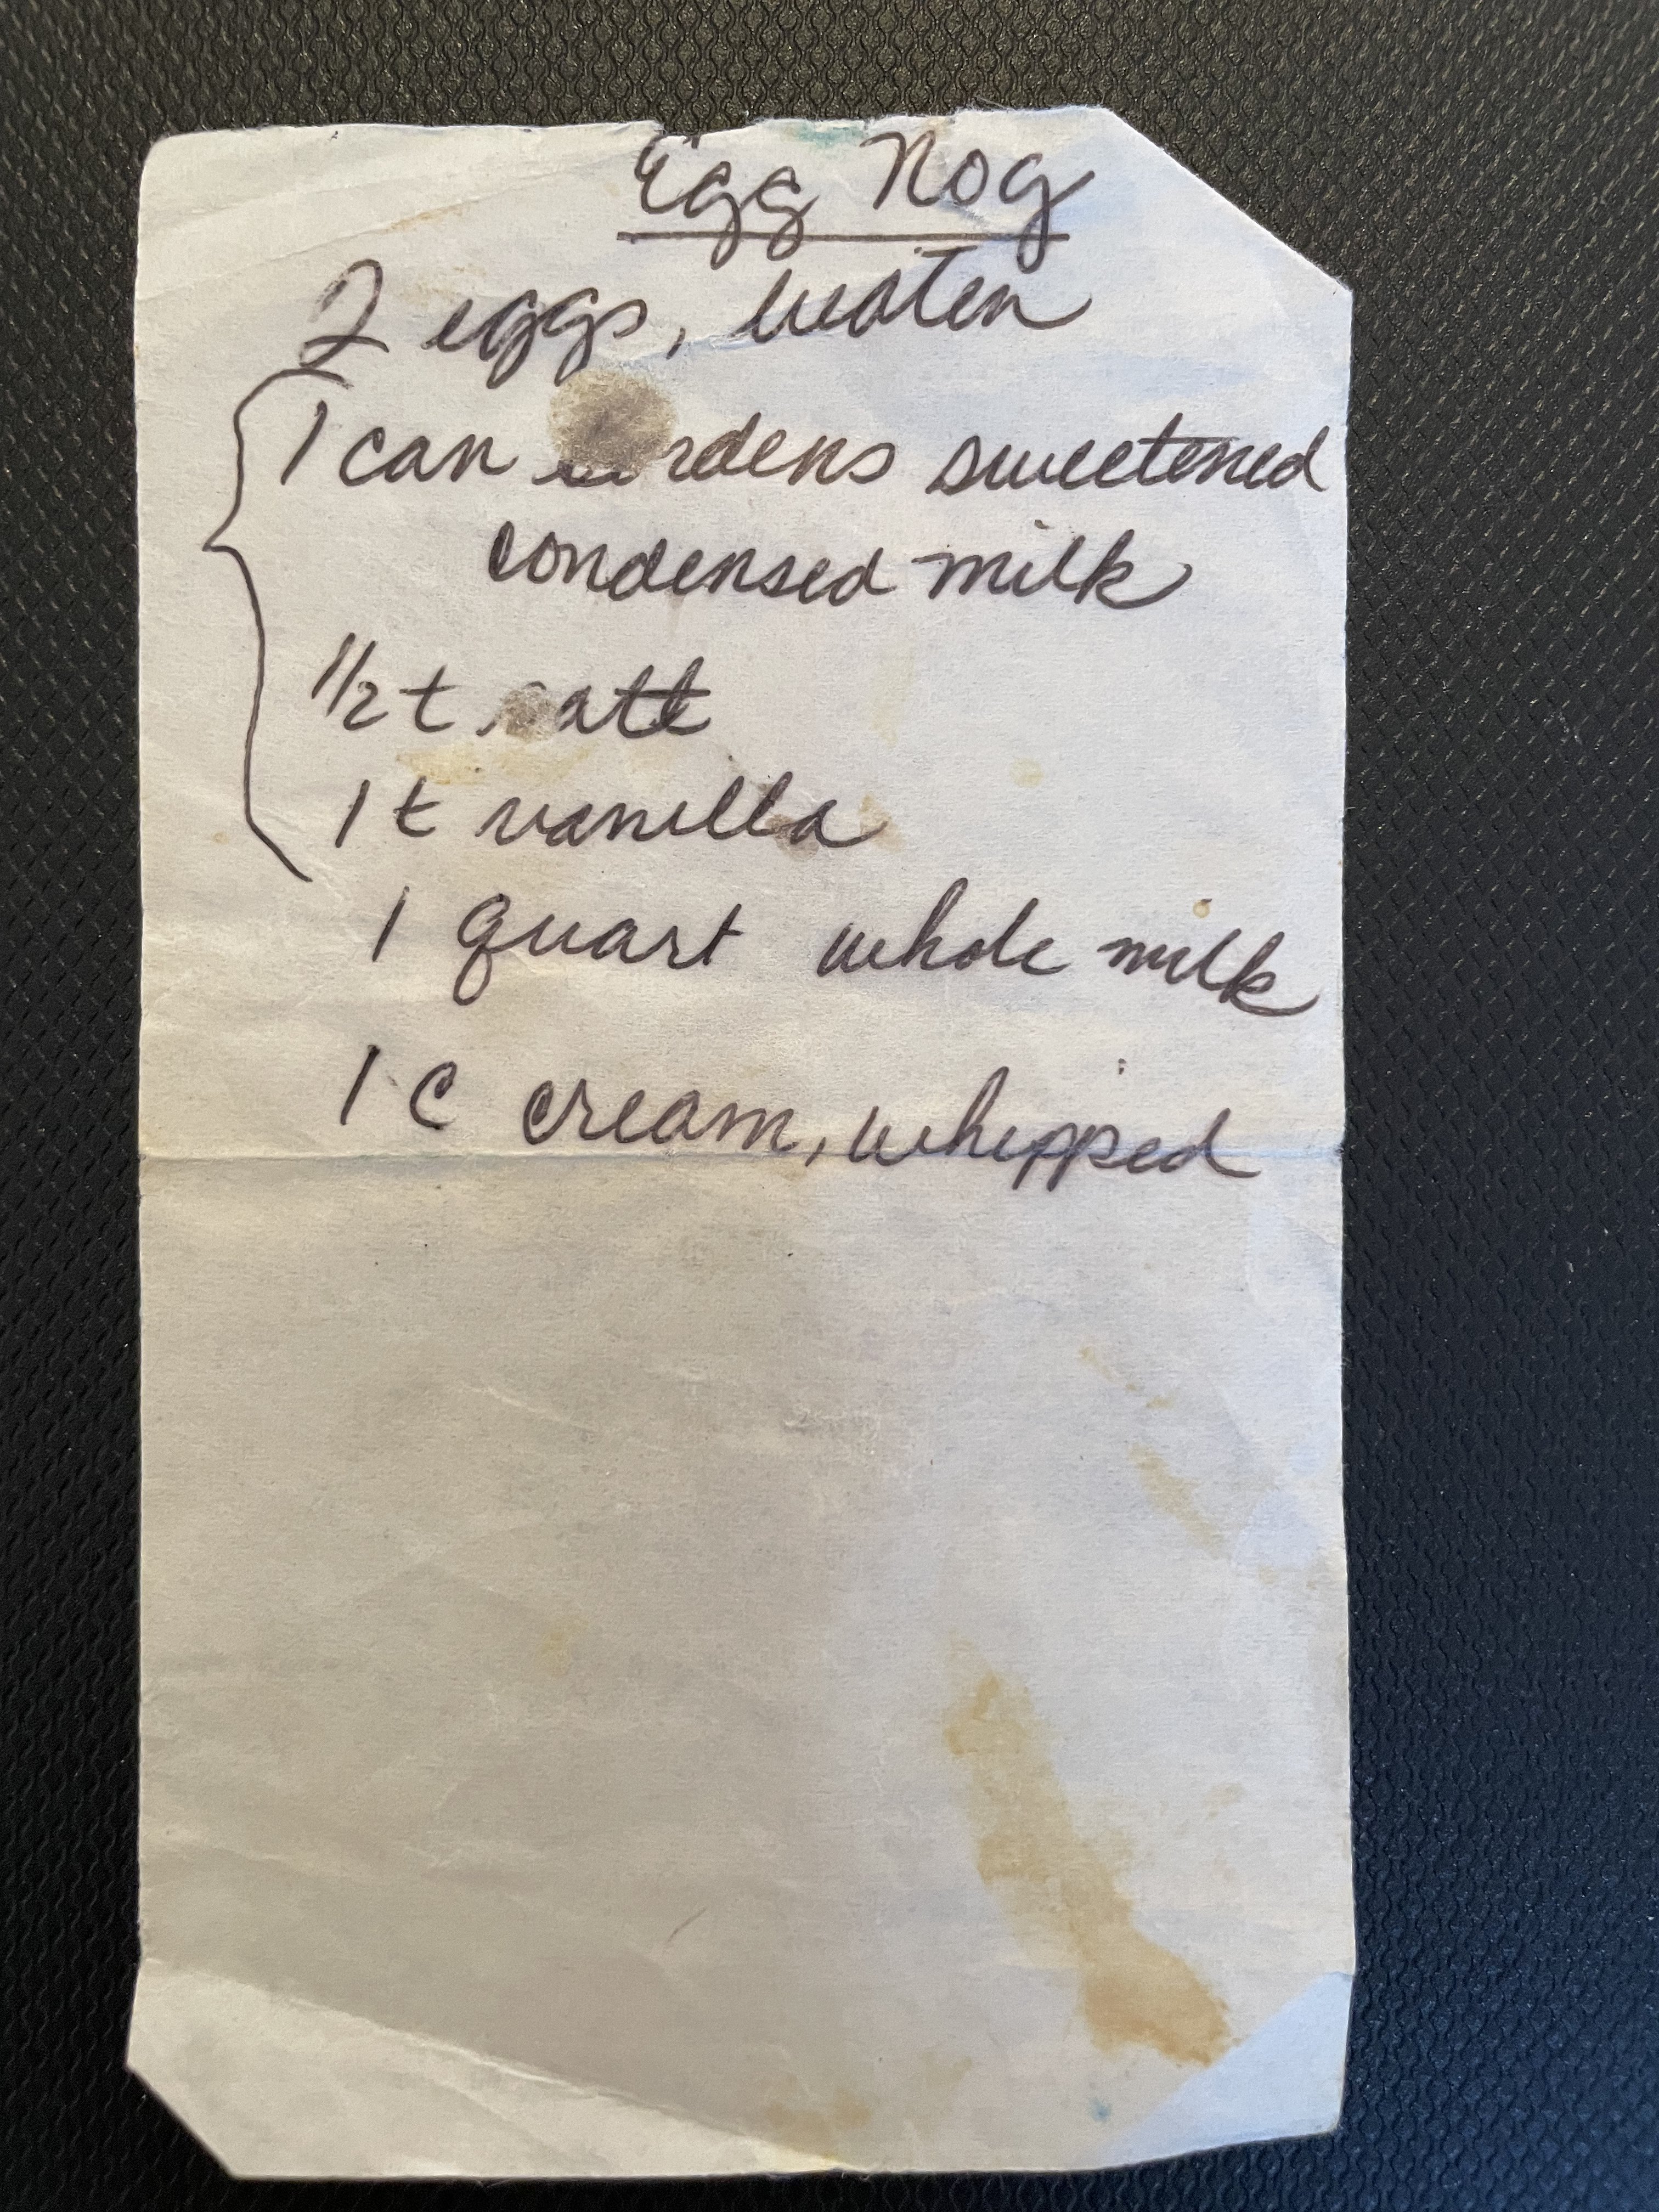 Egg Nog
2 eggs, beaten
1 can Bordens sweetened
condensed milk
1/2 t salt
1 t vanilla
1 quart whole milk
1 C cream, whipped